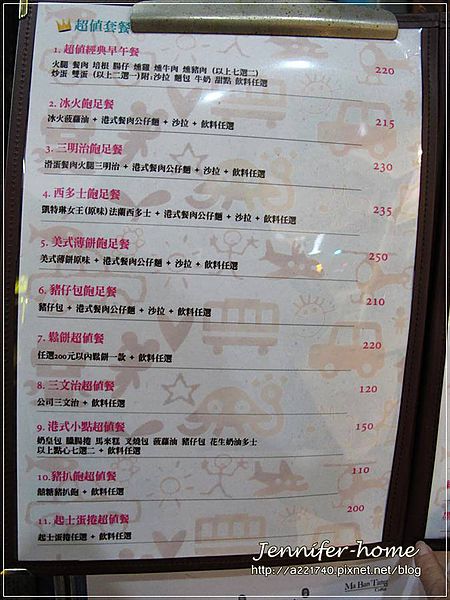 超值套餐
1. 超值經典早午餐
火腿 餐肉 培根 腸仔 燻雞 燻牛肉 燻豬肉 (以上七選二)
炒蛋 雙蛋 (以上二選一)附:沙拉 麵包 牛奶 甜點 飲料任選
220
2. 冰火飽足餐
冰火菠蘿油 + 港式餐肉公仔麵 + 沙拉 + 飲料任選
215
3. 三明治飽足餐
滑蛋餐肉火腿三明治 + 港式餐肉公仔麵 + 沙拉 + 飲料任選
230
4. 西多士飽足餐
凱特琳女王(原味)法蘭西多士 + 港式餐肉公仔麵 + 沙拉 + 飲料任選
235
5. 美式薄餅飽足餐
美式薄餅原味 + 港式餐肉公仔麵 + 沙拉 + 飲料任選
250
6. 豬仔包飽足餐
豬仔包 + 港式餐肉公仔麵 + 沙拉 + 飲料任選
210
7. 鬆餅超值餐
任選200元以內鬆餅一款 + 飲料任選
220
8. 三文治超值餐
公司三文治 + 飲料任選
120
9. 港式小點超值餐
奶皇包 臘腸捲 馬來糕 叉燒包 菠蘿油 豬仔包 花生奶油多士
以上點心七選二 + 飲料任選
150
10. 豬扒飽超值餐
豬扒飽 + 飲料任選
110
11. 起士蛋捲超值餐
起士蛋捲任選 + 飲料任選
200
Jennifer-home
http://a221740.pixnet.net/blog
Ma Ban Tang